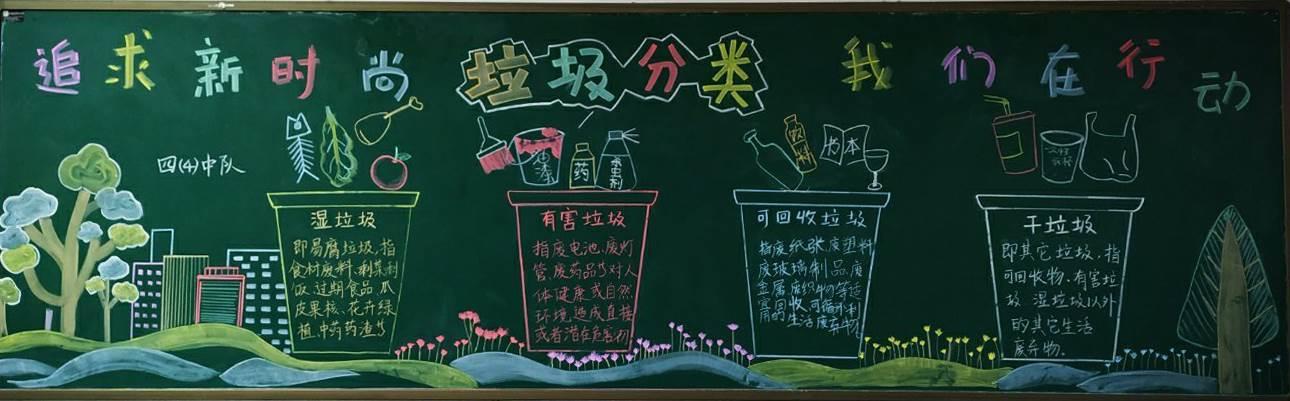 追求新时尚 垃圾分类 我们在行动
四(4)中队
油漆
药
杀虫剂
饮料
书本
湿垃圾
即易腐垃圾,指
食材废料、剩菜剩
饭、过期食品、瓜
皮果核、花卉绿
植、中药药渣等
有害垃圾
指废电池、废灯
管、废药品等对人
体健康或自然
环境造成直接
或者潜在危害的
可回收垃圾
指废纸张、废塑料
废玻璃制品、废
金属、废织物等适
宜回收、可循环利
用的生活废弃物
干垃圾
即其它垃圾,指
可回收物、有害垃
圾、湿垃圾以外
的其它生活
废弃物。